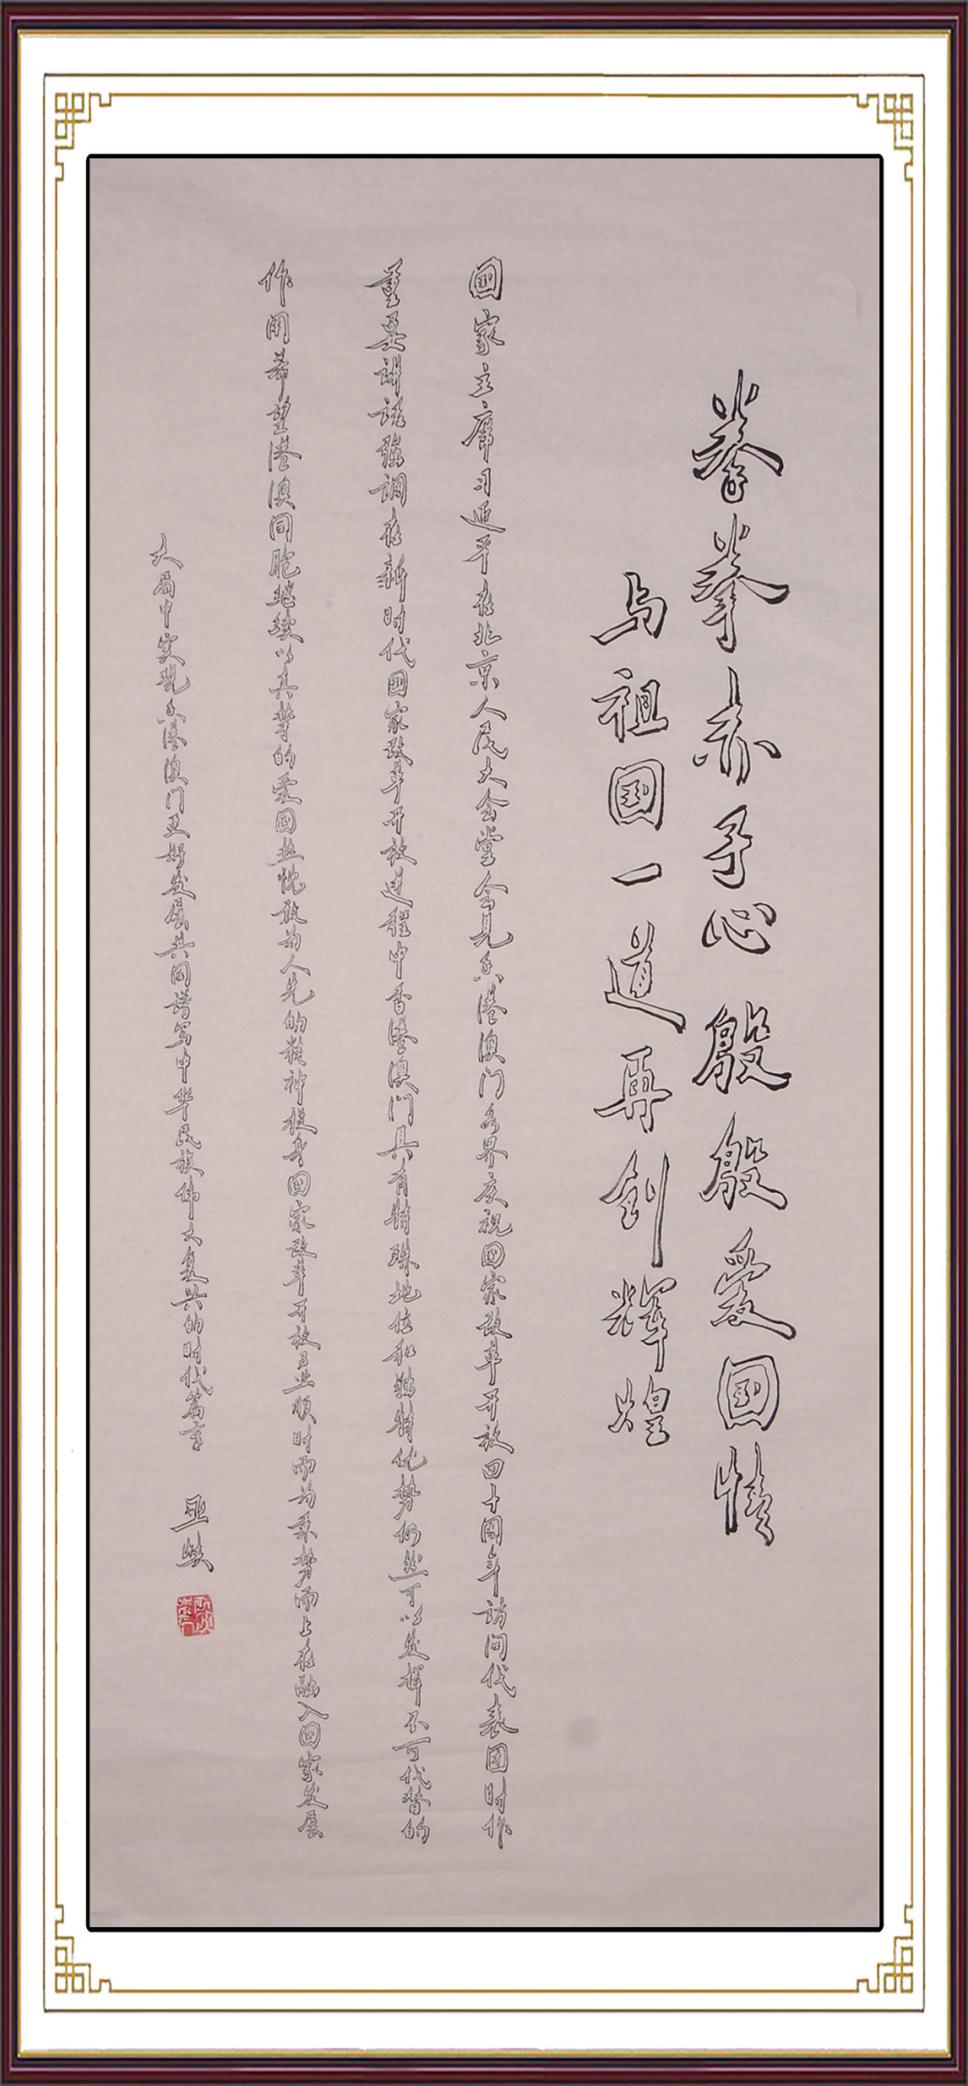 拳拳赤子心殷殷爱国情
与祖国一道再创辉煌
國家主席习近平在北京人民大会堂会见香港澳门各界庆祝国家改革开放四十周年访问代表团时作
重要讲话强调在新时代国家改革开放过程中香港澳门具有特殊地位和独特优势仍然可以发挥不可代替的
作用希望港澳同胞继续以真挚的爱国热忱敢为人先的精神投身国家改革开放事业顺时而为乘势而上在融入国家发展
大局中实现香港澳门更好发展共同谱写中华民族伟大复兴的时代篇章